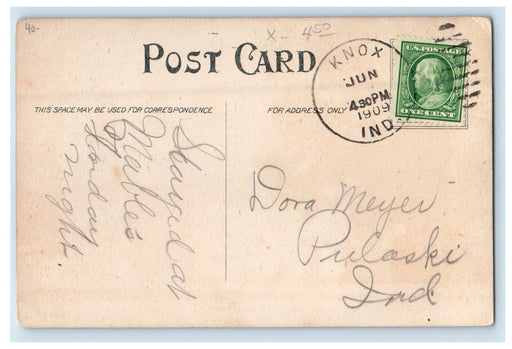 40-
X- 4.50
POST CARD
KNOX
JUN
4.30PM
1909
IND.
U.S. POSTAGE
ONE CENT
THIS SPACE MAY BE USED FOR CORRESPONDENCE
FOR ADDRESS ONLY
at
Mable's
night.
Dora Meyer
Pulaski
Ind